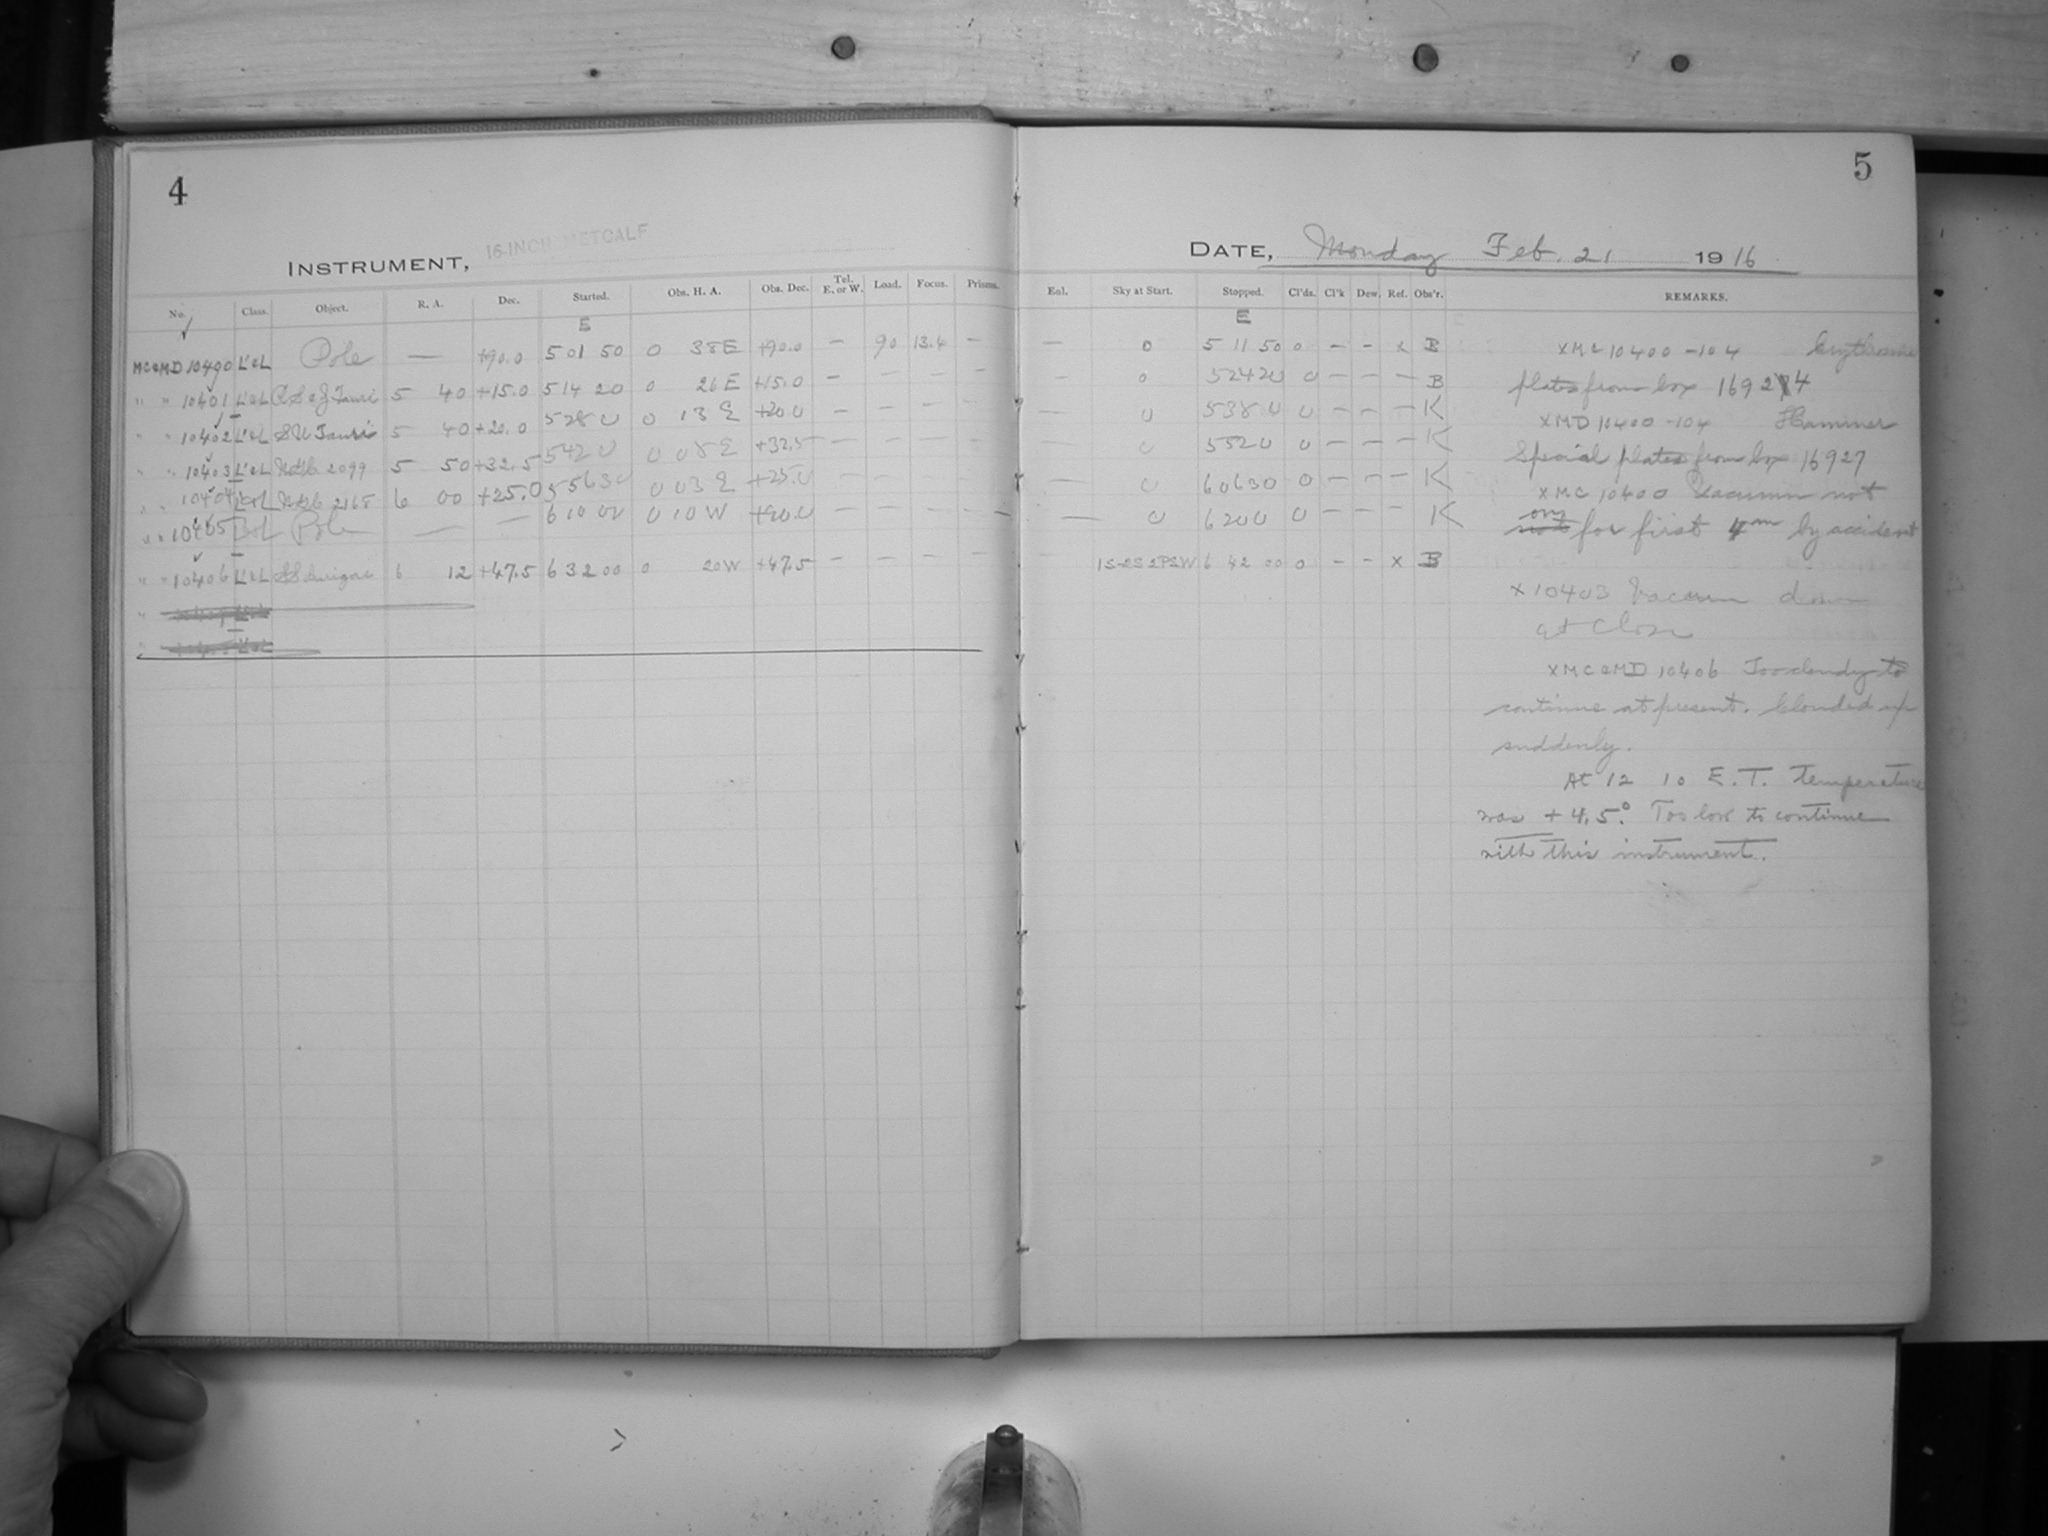 4
INSTRUMENT, 16-INCH METCALF
No. Class. Object. R. A. Dec. Started. Obs. H. A. Obs. Dec. Tel. E. or W. Load. Focus. Prisms.
E
MC&MD 10400 L'&L Pole — +90.0 5 01 50 0 38E +90.0 — 90 13.4 —
" " 10401 L'&L Tauri 5 40 +15.0 5 14 20 0 26E +15.0 — — — —
" " 10402 L'&L SU Tauri 5 40 +20.0 5 28 0 0 13 E +20.0 — — — —
" " 10403 L'&L 2099 5 50 +32.5 5 42 0 0 08 E +32.5 — — — —
" " 10404 L'&L 2168 6 00 +25.0 5 56 30 0 03 E +25.0 — — — —
" " 10405 Pole — — 6 10 00 0 10 W +90.0 — — — — —
" " 10406 L'&L SS Aurigae 6 12 +47.5 6 32 00 0 20W +47.5 — — — —
5
DATE, Monday Feb. 21 1916
Eol. Sky at Start. Stopped. Cl'ds. Cl'k Dew. Ref. Obs'r. REMARKS.
E
— 0 5 11 50 0 — — x B
— 0 5 24 20 0 — — — B
— 0 5 38 0 0 — — — K
— 0 5 52 0 0 — — — K
— 0 6 06 30 0 — — — K
— 0 6 20 0 0 — — — K
1S-2S2PSW 6 42 00 0 — — x B
xMC10400-104
plates from box 16924
xMD 10400-104 Hammer
Special plates from box 16927
xMC 10400 Vacuum not
on for first 4m by accident
x10403 Vacuum down
at close
xMC&MD 10406 Too cloudy to
continue at present. Clouded up
suddenly.
At 12 10 E.T. temperature
was +4.5°. Too low to continue
with this instrument.